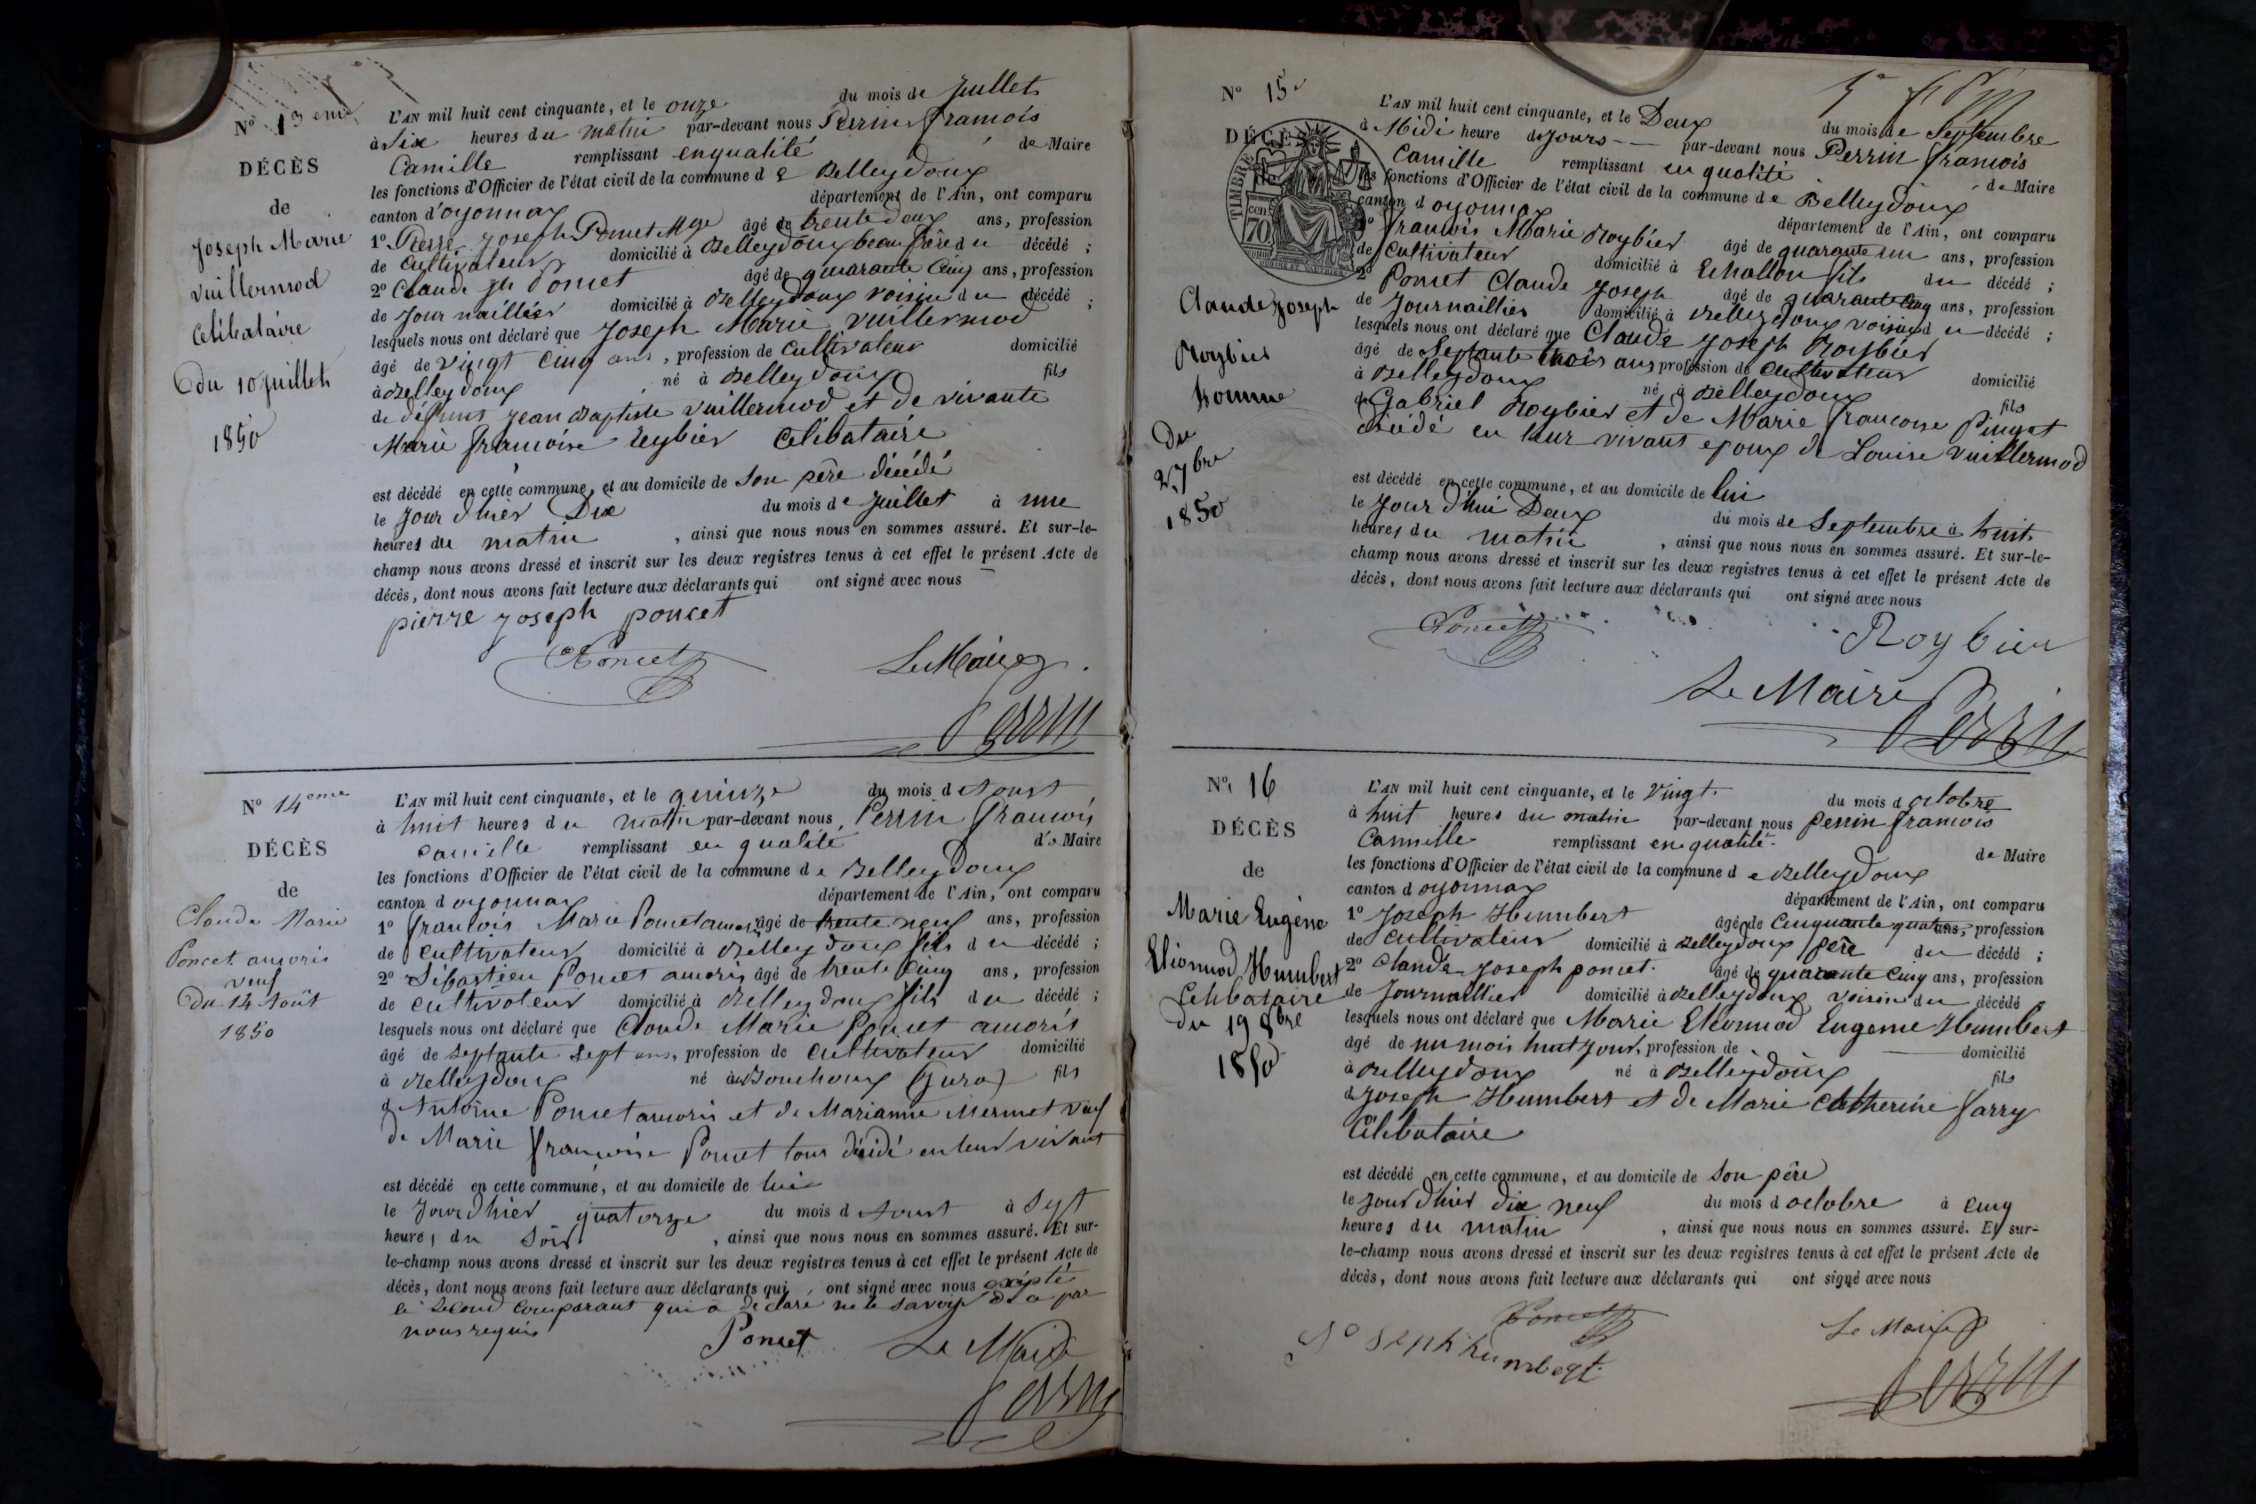 N° 13eme
DÉCÈS
de
Joseph Marie
vuillermod
Célibataire
du 10 juillet
1850
L'AN mil huit cent cinquante, et le onze du mois de juillet
à Six heures du matin par-devant nous Perrin françois
Camille remplissant en qualité de Maire
les fonctions d'Officier de l'état civil de la commune de Belleydoux
canton d'oyonnax département de l'Ain, ont comparu
1° Pierre joseph Poncet âgé de trente deux ans, profession
de Cultivateur domicilié à Belleydoux beau frère du décédé ;
2° Claude jh Poncet âgé de quarante Cinq ans, profession
de Journaillier domicilié à Belleydoux voisin du décédé ;
lesquels nous ont déclaré que Joseph Marie vuillermod
âgé de vingt Cinq ans, profession de Cultivateur domicilié
à Belleydoux né à Belleydoux fils
de défunt jean Baptiste vuillermod et de vivante
Marie françoise Reybier Célibataire
est décédé en cette commune, et au domicile de son père décédé
le jour d'hier Dix du mois de juillet à une
heures du matin, ainsi que nous nous en sommes assuré. Et sur-le-
champ nous avons dressé et inscrit sur les deux registres tenus à cet effet le présent Acte de
décès, dont nous avons fait lecture aux déclarants qui ont signé avec nous
pierre joseph poncet
Poncet Le Maire
Perrin
N° 14eme
DÉCÈS
de
Claude Marie
Poncet amoris
veuf
Du 14 Août
1850
L'AN mil huit cent cinquante, et le quinze du mois d Aoust
à huit heures du matin par-devant nous Perrin françois
Camille remplissant en qualité de Maire
les fonctions d'Officier de l'état civil de la commune de Belleydoux
canton d oyonnax département de l'Ain, ont comparu
1° françois Marie Poncet amoris âgé de trente neuf ans, profession
de Cultivateur domicilié à Belleydoux fils du décédé ;
2° Sébastien Poncet amoris âgé de trente Cinq ans, profession
de Cultivateur domicilié à Belleydoux fils du décédé ;
lesquels nous ont déclaré que Claude Marie Poncet amoris
âgé de septante sept ans, profession de Cultivateur domicilié
à Belleydoux né à Bouchoux (jura) fils
d Antoine Poncet amoris et de Marianne Mermet veuf
de Marie françoise Poncet tous décidé en leur vivant
est décédé en cette commune, et au domicile de lui
le jour d'hier quatorze du mois d Aoust à Sept
heures du Soir, ainsi que nous nous en sommes assuré. Et sur-
le-champ nous avons dressé et inscrit sur les deux registres tenus à cet effet le présent Acte de
décès, dont nous avons fait lecture aux déclarants qui ont signé avec nous exépté
le second comparant qui a déclaré ne le savoir de ce par
nous requis
Poncet Le Maire
Perrin
N° 15
DÉCÈS
TIMBRE
70
Claude joseph
Roybier
homme
Du
2 7bre
1850
L'AN mil huit cent cinquante, et le Deux du mois de Septembre
à Midi heure du jours par-devant nous Perrin françois
Camille remplissant en qualité de Maire
les fonctions d'Officier de l'état civil de la commune de Belleydoux
canton d oyonnax département de l'Ain, ont comparu
1° françois Marie Roybier âgé de quarante un ans, profession
de Cultivateur domicilié à Echallon fils du décédé ;
2° Poncet Claude joseph âgé de quarante Cinq ans, profession
de Journaillier domicilié à Belleydoux voisin du décédé ;
lesquels nous ont déclaré que Claude joseph Roybier
âgé de Septante trois ans profession de Cultivateur domicilié
à Belleydoux né à Belleydoux fils
de Gabriel Roybier et de Marie françoise Pinget
décédé en leur vivant époux de Louise vuillermod
est décédé en cette commune, et au domicile de lui
le jour d'hui Deux du mois de Septembre à huit
heures du matin, ainsi que nous nous en sommes assuré. Et sur-le-
champ nous avons dressé et inscrit sur les deux registres tenus à cet effet le présent Acte de
décès, dont nous avons fait lecture aux déclarants qui ont signé avec nous
Poncet Roybier
Le Maire
Perrin
N° 16
DÉCÈS
de
Marie Eugène
Eléonnod Humbert
Célibataire
du 19 8bre
1850
L'AN mil huit cent cinquante, et le vingt du mois d octobre
à huit heures du matin par-devant nous Perrin françois
Cammille remplissant en qualité de Maire
les fonctions d'Officier de l'état civil de la commune de Belleydoux
canton d oyonnax département de l'Ain, ont comparu
1° Joseph Humbert âgé de Cinquante quatre ans, profession
de Cultivateur domicilié à Belleydoux père du décédé ;
2° Claude joseph poncet âgé de quarante Cinq ans, profession
de Journaillier domicilié à Belleydoux voisin du décédé
lesquels nous ont déclaré que Marie Eléonnod Eugenie Humbert
âgé de un mois huit jour, profession de domicilié
à Belleydoux né à Belleydoux fils
de Joseph Humbert et de Marie Catherine farry
Célibataire
est décédé en cette commune, et au domicile de son père
le jour d'hier dix neuf du mois d octobre à cinq
heures du matin, ainsi que nous nous en sommes assuré. Et sur-
le-champ nous avons dressé et inscrit sur les deux registres tenus à cet effet le présent Acte de
décès, dont nous avons fait lecture aux déclarants qui ont signé avec nous
Poncet Le Maire
Joseph humbert
Perrin